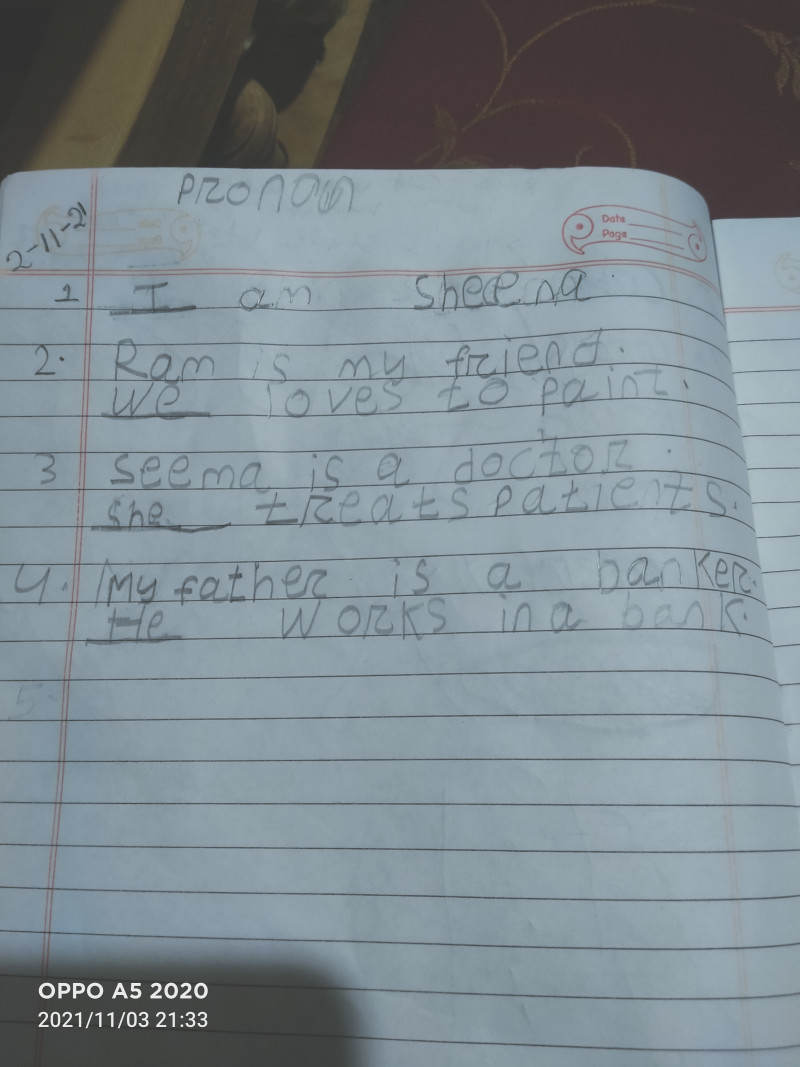 PRONOUN
2-11-21
Date
Page
1 I am Sheena.
2. Ram is my friend.
We loves to paint.
3 Seema is a doctor.
She treats patients.
4. My father is a banker.
He works in a bank.
5.
OPPO A5 2020
2021/11/03 21:33